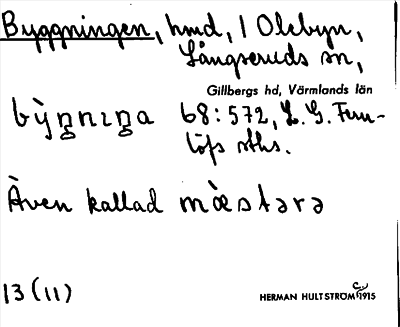 Byggningen, hmd, 1 Olebyn,
Långseruds sn,
Gillbergs hd, Värmlands län
bỳŋnıŋa 68:572, L. G. Fun-
löfs sths.
Även kallad mæ̀stərə
13 (11)
HERMAN HULTSTRÖM C:a 1915